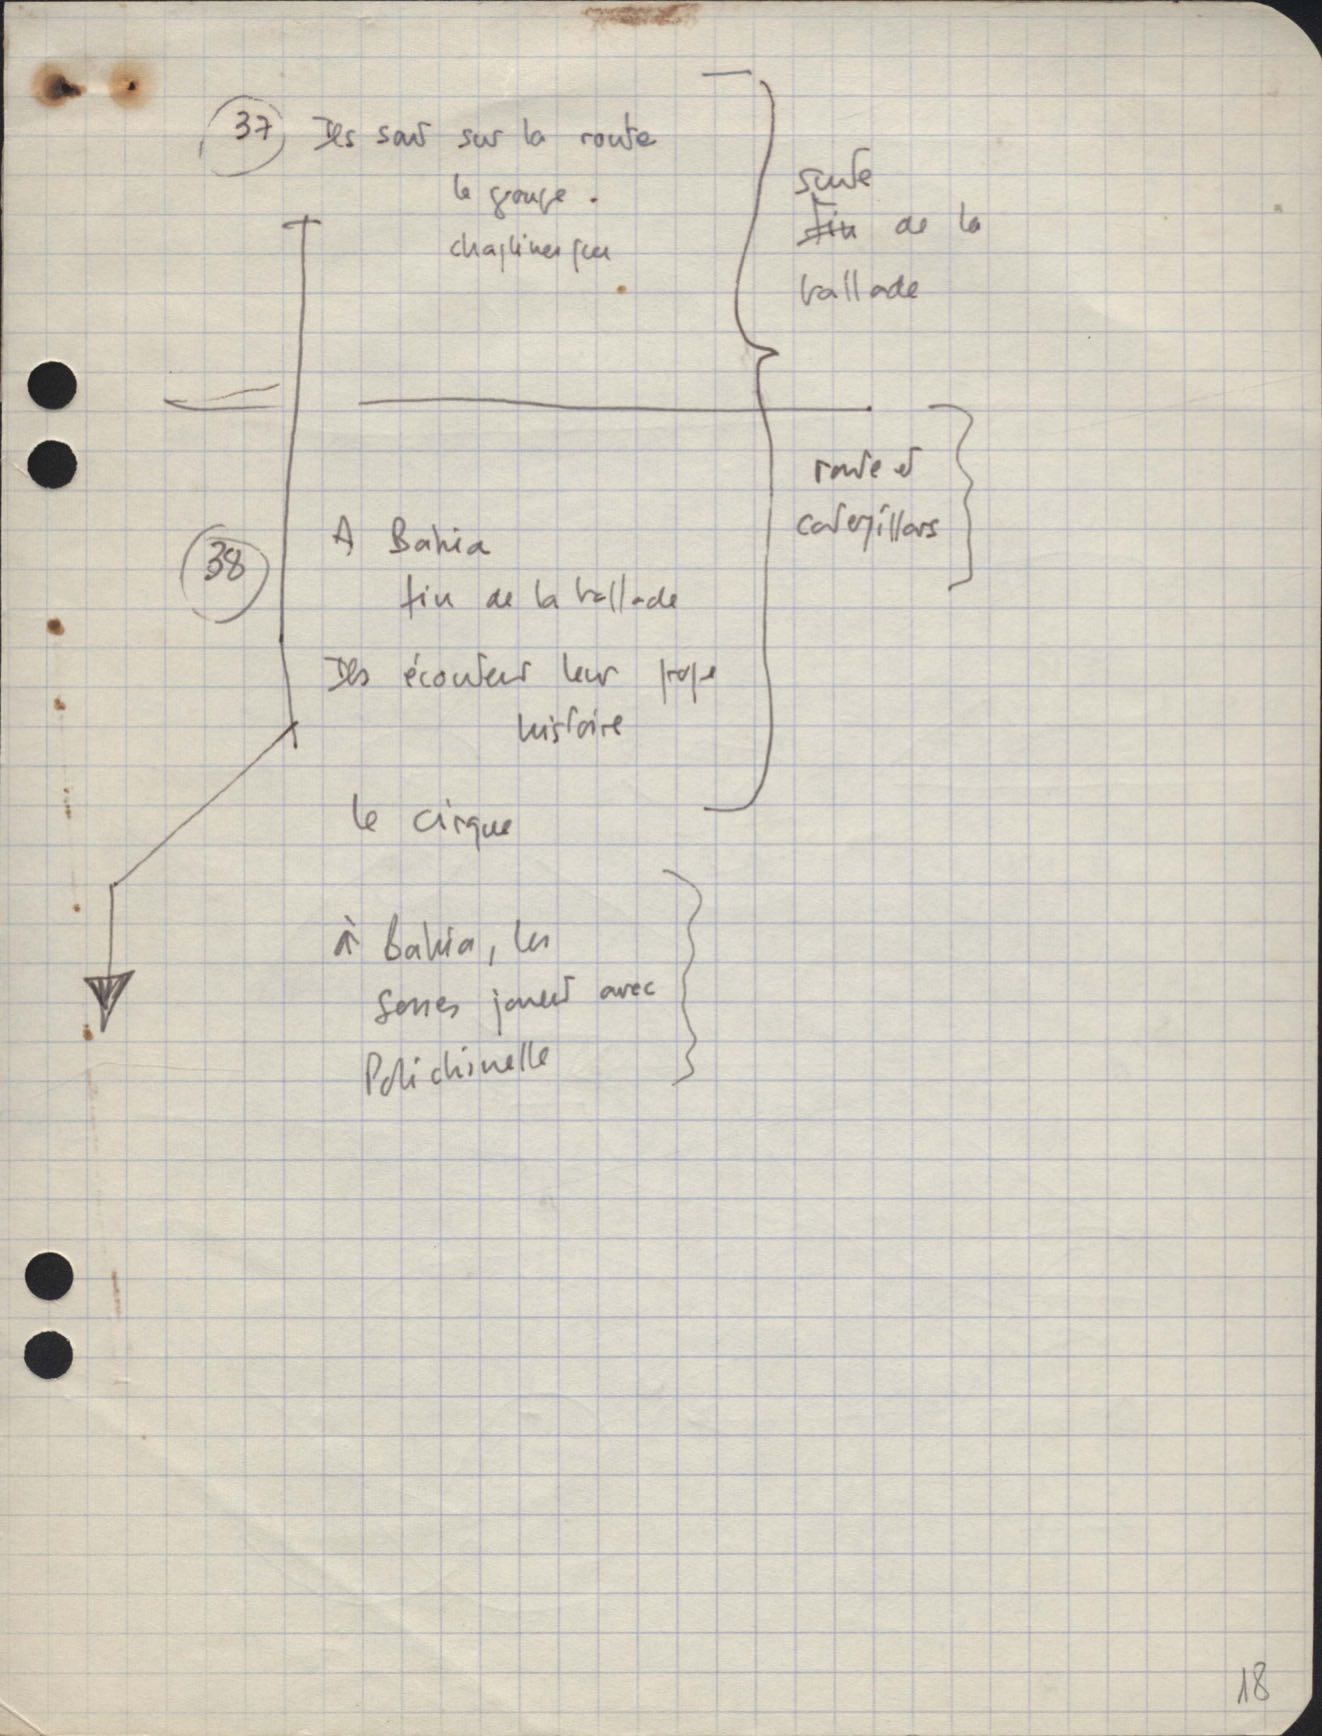 37 Ils sont sur la route
le groupe.
chaplinesque
suite
fin de la
ballade
route et
caterpillars
38
A Bahia
fin de la ballade
Ils écoutent leur propre
histoire
le cirque
à Bahia, les
gosses jouent avec
Polichinelle
18